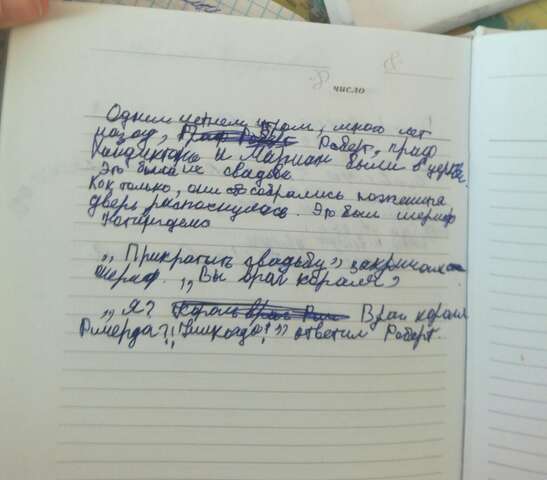 число
Одним летнем утром, много лет
назад, Роберт, граф
Хандингтона и Мариан были в церкви.
Это была их свадьба
Как только, они собрались пожениться
дверь распахнулась. Это был шериф
Нотингдема
„Прикратить свадьбу” закричал
шериф. „Вы враг короля”
„Я? Враг короля
Ричерда?! Никогда!” ответил Роберт.